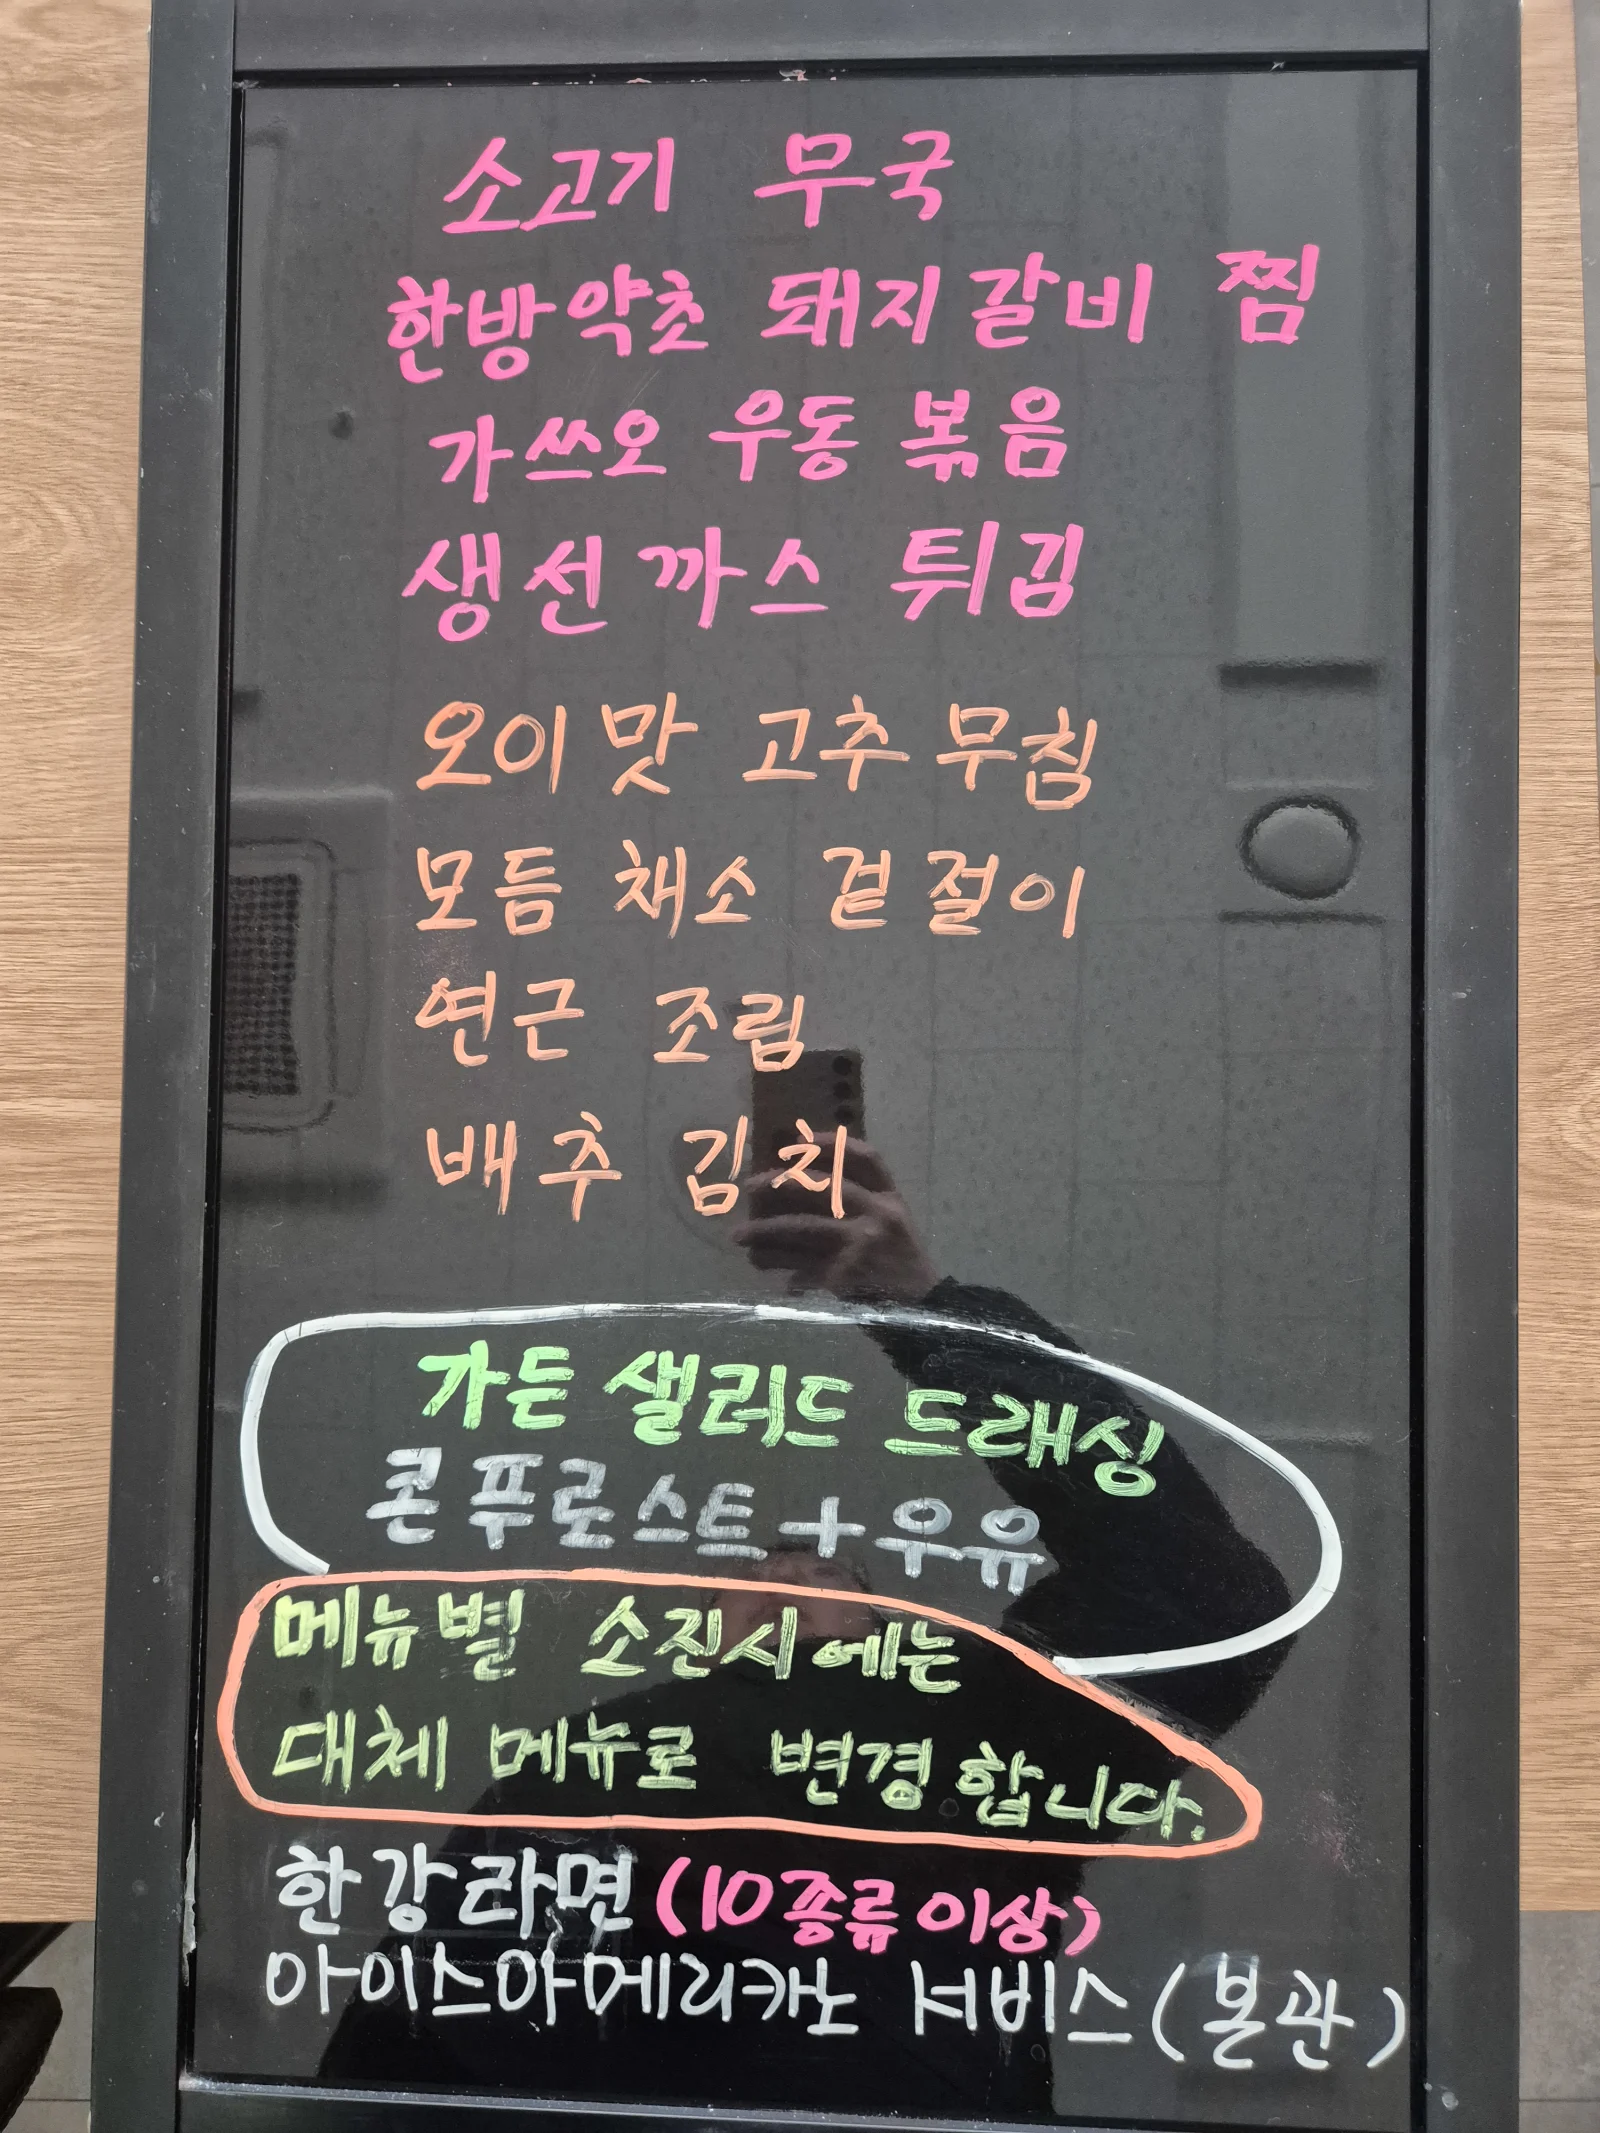 소고기 무국
한방약초 돼지갈비 찜
가쓰오 우동 볶음
생선까스 튀김
오이맛 고추무침
모듬 채소 겉절이
연근 조림
배추 김치
가든 샐러드 드래싱
콘푸로스트+우유
메뉴별 소진시에는
대체 메뉴로 변경합니다.
한강라면(10종류이상)
아이스아메리카노 서비스(본관)